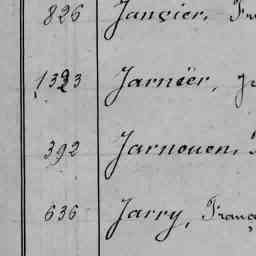 826 Jansier,
1323 Jarnier,
392 Jarnouen,
636 Jarry, Franç